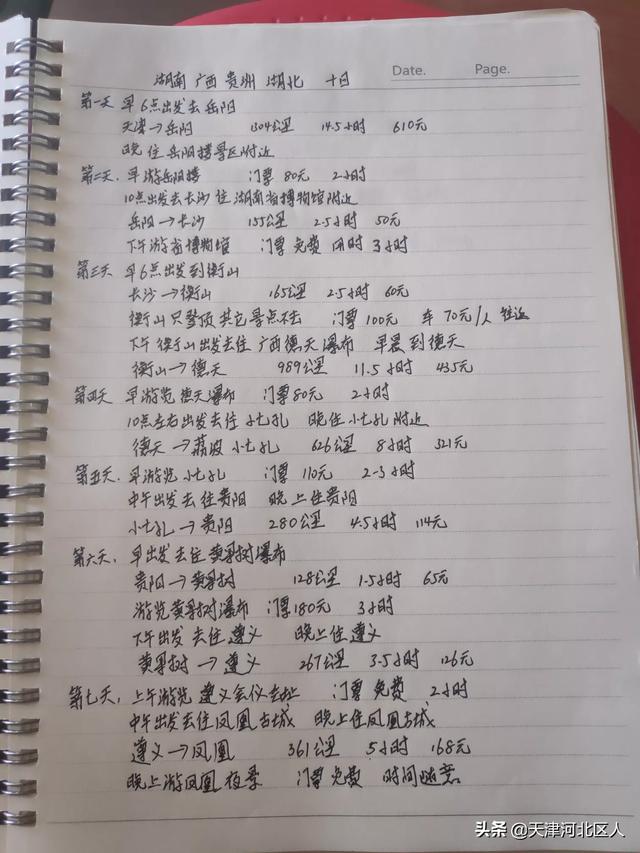 湖南 广西 贵州 湖北 十日
Date. Page.
第一天 早6点出发去岳阳
天津→岳阳 1304公里 14.5小时 610元
晚住岳阳楼景区附近
第二天. 早游岳阳楼 门票80元 2小时
10点出发去长沙住湖南省博物馆附近
岳阳→长沙 155公里 2.5小时 50元
下午游省博物馆 门票免费 用时3小时
第三天 早6点出发到衡山
长沙→衡山 165公里 2.5小时 60元
衡山只登顶其它景点不去 门票100元 车70元/人 往返
下午衡山出发去往广西德天瀑布 早晨到德天
衡山→德天 989公里 11.5小时 435元
第四天 早游览德天瀑布 门票80元 2小时
10点左右出发去住小七孔 晚住小七孔附近
德天→荔波小七孔 626公里 8小时 321元
第五天. 早游览小七孔 门票110元 2-3小时
中午出发去住贵阳 晚上住贵阳
小七孔→贵阳 280公里 4.5小时 114元
第六天. 早出发去住黄果树瀑布
贵阳→黄果树 128公里 1.5小时 65元
游览黄果树瀑布 门票180元 3小时
下午出发去住遵义 晚上住遵义
黄果树→遵义 267公里 3.5小时 126元
第七天. 上午游览遵义会议会址 门票免费 2小时
中午出发去住凤凰古城 晚上住凤凰古城
遵义→凤凰 361公里 5小时 168元
晚上游凤凰夜景 门票免费 时间随意
头条 @天津河北区人